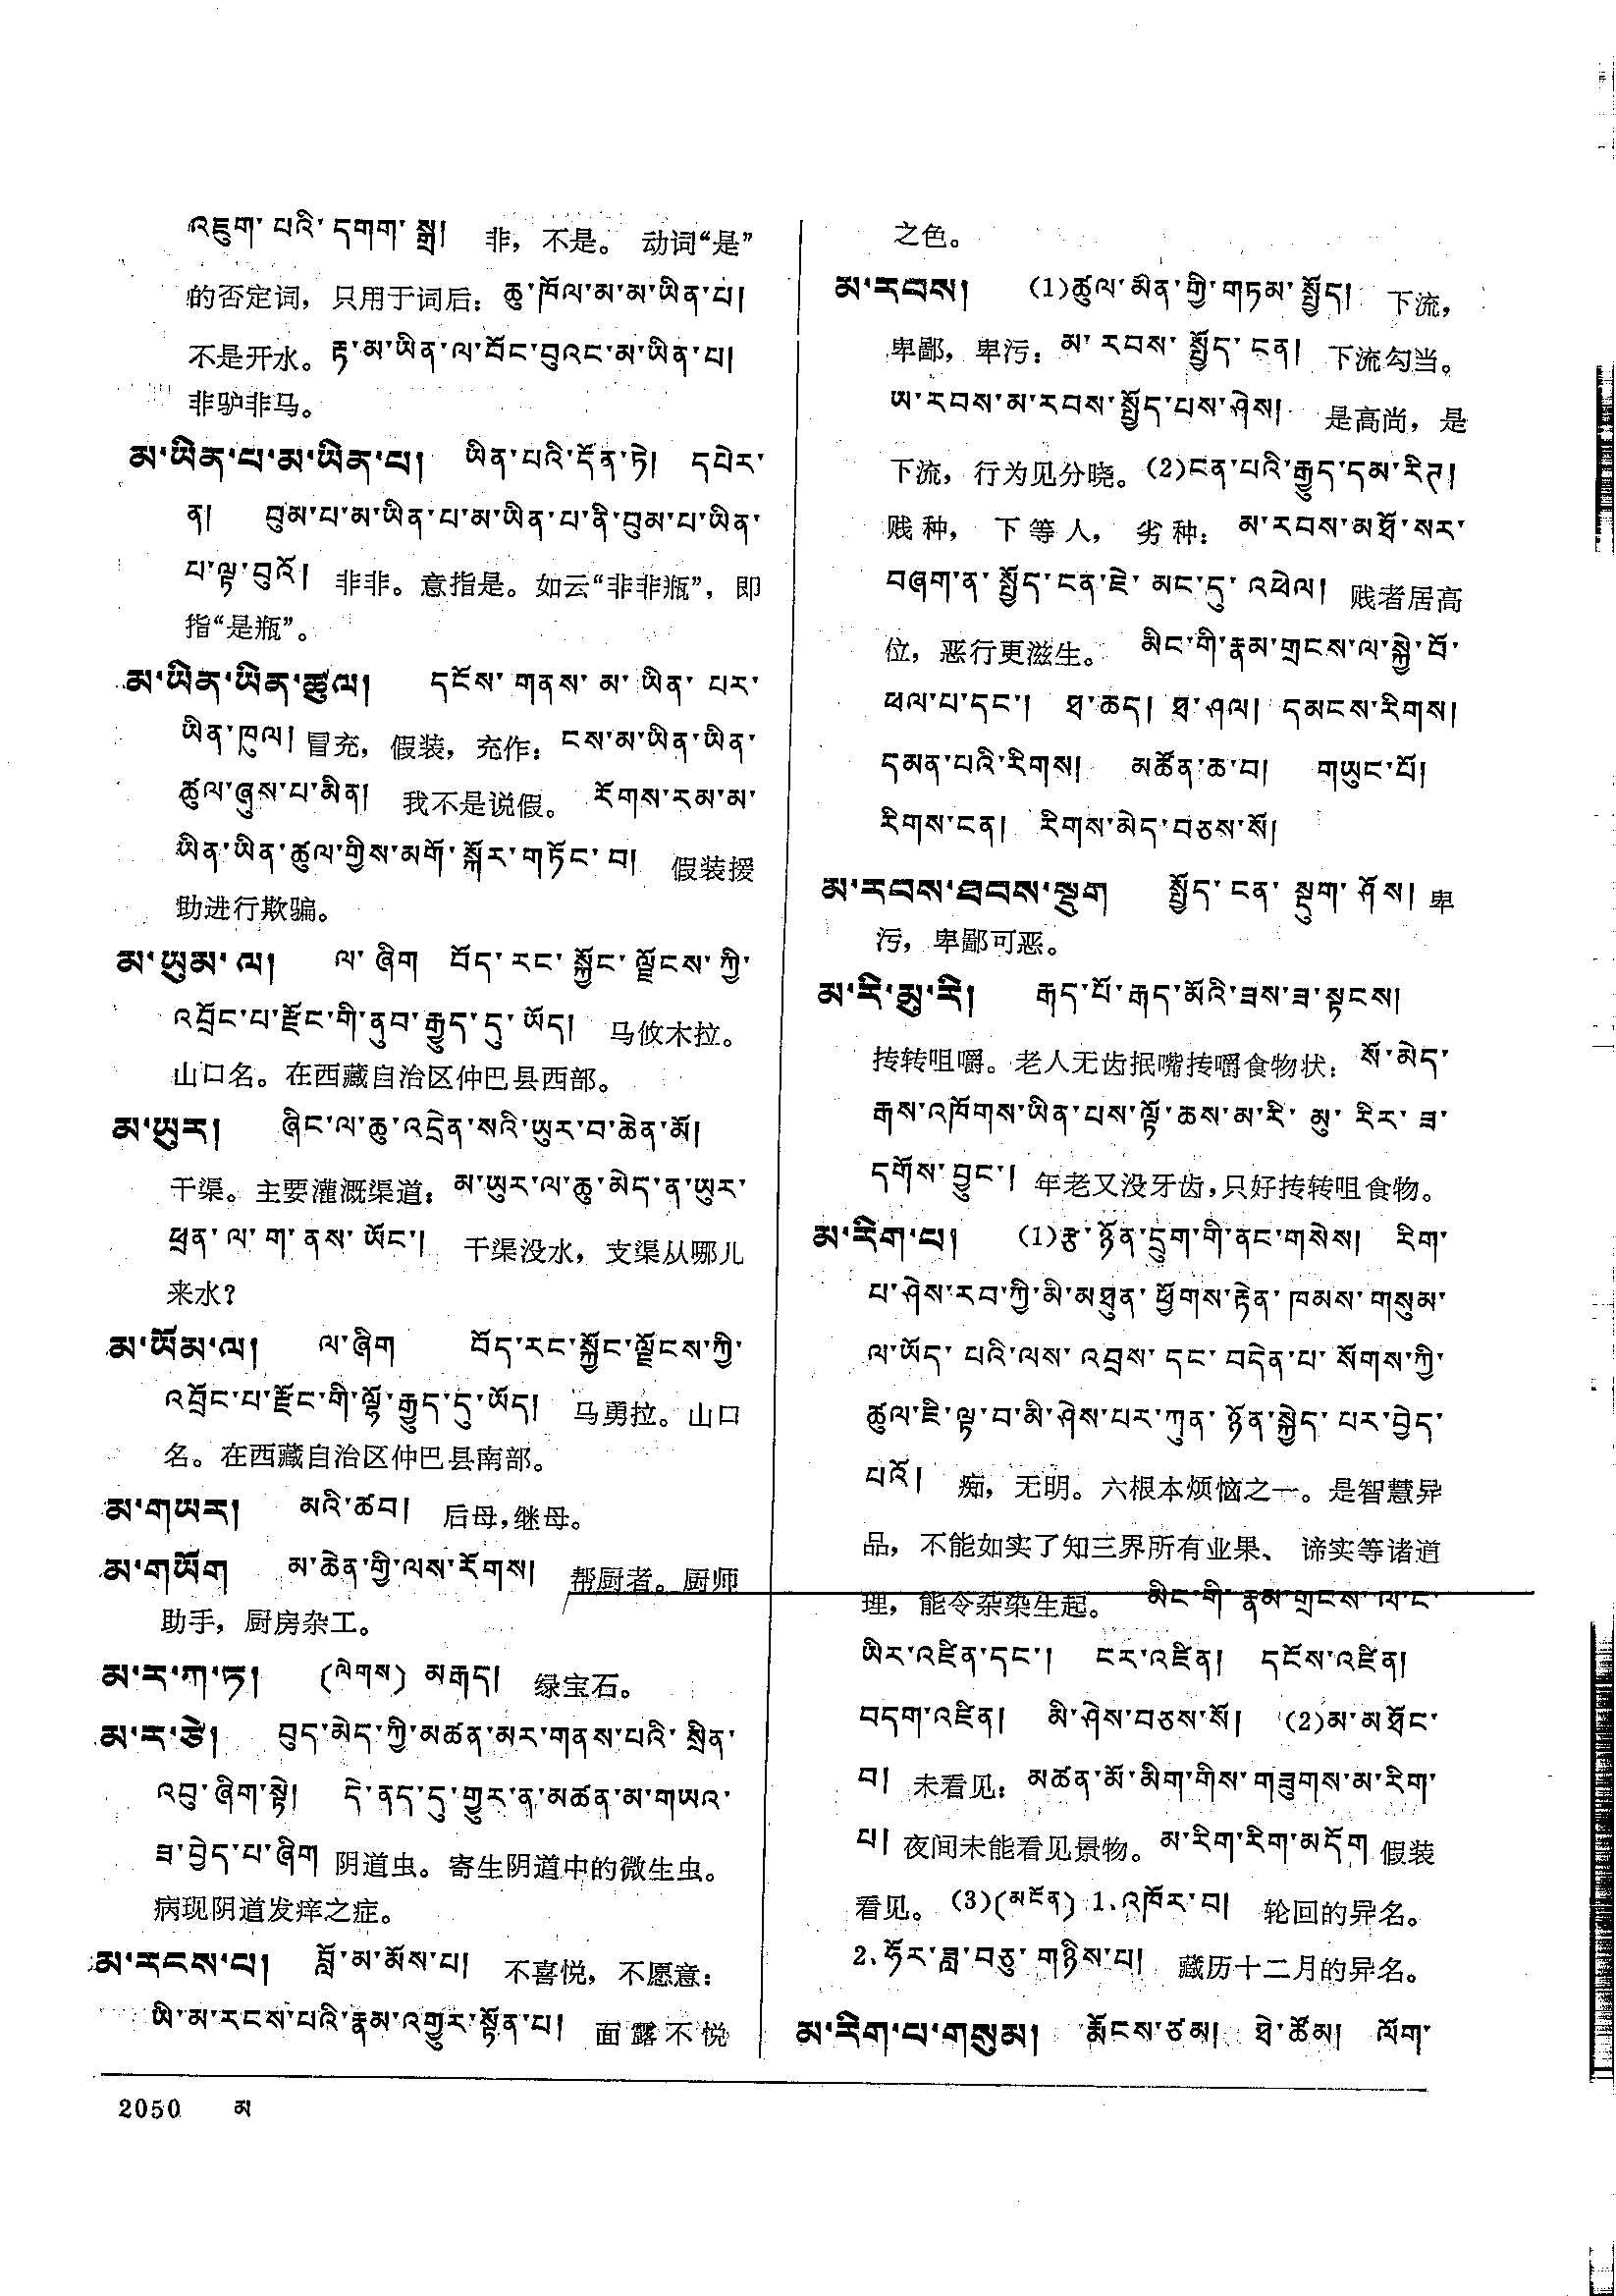 འཇུག་པའི་དགག་སྒྲ། 非，不是。 动词“是”
的否定词，只用于词后：ཆུ་ཁོལ་མ་མ་ཡིན་པ།
不是开水。རྟ་མ་ཡིན་ལ་བོང་བུའང་མ་ཡིན་པ།
非驴非马。
མ་ཡིན་པ་མ་ཡིན་པ། ཡིན་པའི་དོན་ཏེ། དཔེར་
ན། བུམ་པ་མ་ཡིན་པ་མ་ཡིན་པ་ནི་བུམ་པ་ཡིན་
པ་ལྟ་བུའོ། 非非。意指是。如云“非非瓶”，即
指“是瓶”。
མ་ཡིན་ཡིན་ཚུལ། དངོས་གནས་མ་ཡིན་པར་
ཡིན་ཁུལ། 冒充，假装，充作：ངས་མ་ཡིན་ཡིན་
ཚུལ་ཞུས་པ་མིན། 我不是说假。 རོགས་རམ་མ་
ཡིན་ཡིན་ཚུལ་གྱིས་མགོ་སྐོར་གཏོང་བ། 假装援
助进行欺骗。
མ་ཡུམ་ལ། ལ་ཞིག བོད་རང་སྐྱོང་ལྗོངས་ཀྱི་
འབྲོང་པ་རྫོང་གི་ནུབ་རྒྱུད་དུ་ཡོད། 马攸木拉。
山口名。在西藏自治区仲巴县西部。
མ་ཡུར། ཞིང་ལ་ཆུ་འདྲེན་སའི་ཡུར་བ་ཆེན་མོ།
干渠。主要灌溉渠道：མ་ཡུར་ལ་ཆུ་མེད་ན་ཡུར་
ཕྲན་ལ་ག་ནས་ཡོང་། 干渠没水，支渠从哪儿
来水？
མ་ཡོམ་ལ། ལ་ཞིག བོད་རང་སྐྱོང་ལྗོངས་ཀྱི་
འབྲོང་པ་རྫོང་གི་ལྷོ་རྒྱུད་དུ་ཡོད། 马勇拉。山口
名。在西藏自治区仲巴县南部。
མ་གཡར། མའི་ཚབ། 后母，继母。
མ་གཡོག མ་ཆེན་གྱི་ལས་རོགས། 帮厨者。厨师
助手，厨房杂工。
མ་ར་ཀ་ཏ། (ལེགས) མརྒད། 绿宝石。
མ་ར་ཙེ། བུད་མེད་ཀྱི་མཚན་མར་གནས་པའི་སྲིན་
འབུ་ཞིག་སྟེ། དེ་ནད་དུ་གྱུར་ན་མཚན་མ་གཡའ་
ཟ་བྱེད་པ་ཞིག 阴道虫。寄生阴道中的微生虫。
病现阴道发痒之症。
མ་རངས་པ། བློ་མ་མོས་པ། 不喜悦，不愿意：
ཡི་མ་རངས་པའི་རྣམ་འགྱུར་སྟོན་པ། 面露不悦
之色。
མ་རབས། (1)ཚུལ་མིན་གྱི་གཏམ་སྤྱོད། 下流，
卑鄙，卑污：མ་རབས་སྤྱོད་ངན། 下流勾当。
ཡ་རབས་མ་རབས་སྤྱོད་པས་ཤེས། 是高尚，是
下流，行为见分晓。(2)ངན་པའི་རྒྱུད་དམ་རིཊ།
贱种， 下等人， 劣种：མ་རབས་མཐོ་སར་
བཞག་ན་སྤྱོད་ངན་ཇེ་མང་དུ་འཕེལ། 贱者居高
位，恶行更滋生。 མིང་གི་རྣམ་གྲངས་ལ་སྐྱེ་བོ་
ཕལ་པ་དང་། ཐ་ཆད། ཐ་ཤལ། དམངས་རིགས།
དམན་པའི་རིགས། མཚོན་ཆ་བ། གཡུང་པོ།
རིགས་ངན། རིགས་མེད་བཅས་སོ།
མ་རབས་ཐབས་སྡུག སྤྱོད་ངན་སྡུག་ཤོས། 卑
污，卑鄙可恶。
མ་རི་མུ་རི། རྒད་པོ་རྒད་མོའི་ཟས་ཟ་སྟངས།
抟转咀嚼。老人无齿抿嘴抟嚼食物状：སོ་མེད་
རྒས་འཁོགས་ཡིན་པས་ལྟོ་ཆས་མ་རི་མུ་རིར་ཟ་
དགོས་བྱུང་། 年老又没牙齿，只好抟转咀食物。
མ་རིག་པ། (1)རྩ་ཉོན་དྲུག་གི་ནང་གསེས། རིག་
པ་ཤེས་རབ་ཀྱི་མི་མཐུན་ཕྱོགས་རྟེན་ཁམས་གསུམ་
ལ་ཡོད་པའི་ལས་འབྲས་དང་བདེན་པ་སོགས་ཀྱི་
ཚུལ་ཇི་ལྟ་བ་མི་ཤེས་པར་ཀུན་ཉོན་སྐྱེད་པར་བྱེད་
པའོ། 痴，无明。六根本烦恼之一。是智慧异
品，不能如实了知三界所有业果、 谛实等诸道
理，能令杂染生起。 མིང་གི་རྣམ་གྲངས་ལ་ང་
ཡིར་འཛིན་དང་། ངར་འཛིན། དངོས་འཛིན།
བདག་འཛིན། མི་ཤེས་བཅས་སོ། (2)མ་མཐོང་
བ། 未看见：མཚན་མོ་མིག་གིས་གཟུགས་མ་རིག་
པ། 夜间未能看见景物。མ་རིག་རིག་མདོག 假装
看见。(3)(མངོན) 1.འཁོར་བ། 轮回的异名。
2.ཧོར་ཟླ་བཅུ་གཉིས་པ། 藏历十二月的异名。
མ་རིག་པ་གསུམ། རྨོངས་ཙམ། ཐེ་ཚོམ། ལོག་
2050 མ